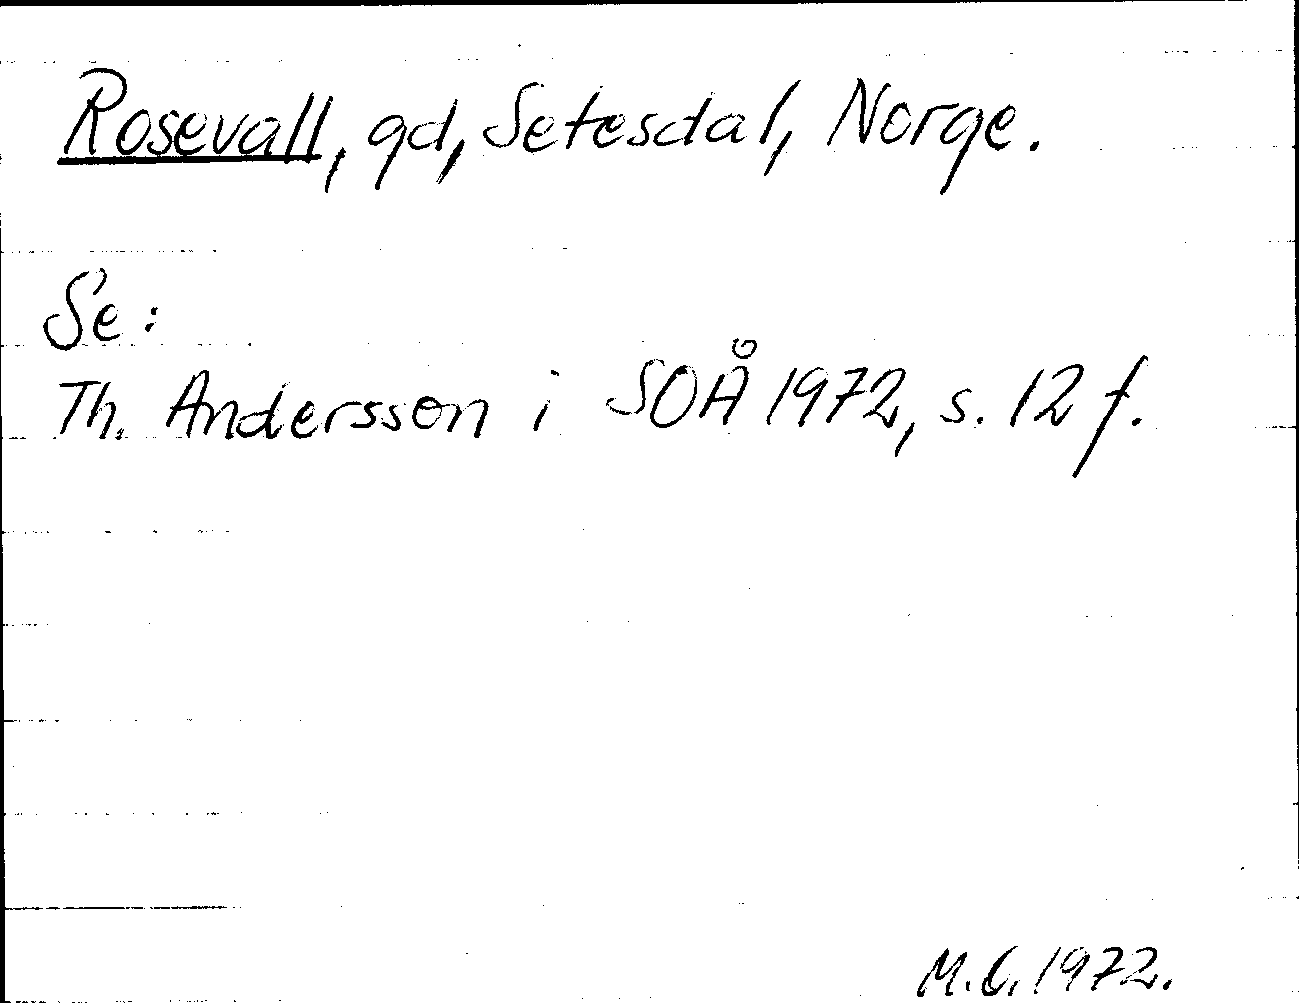 Rosevall, gd, Setesdal, Norge.
Se:
Th. Andersson i SOÅ 1972, s. 12 f.
M.O. 1972.